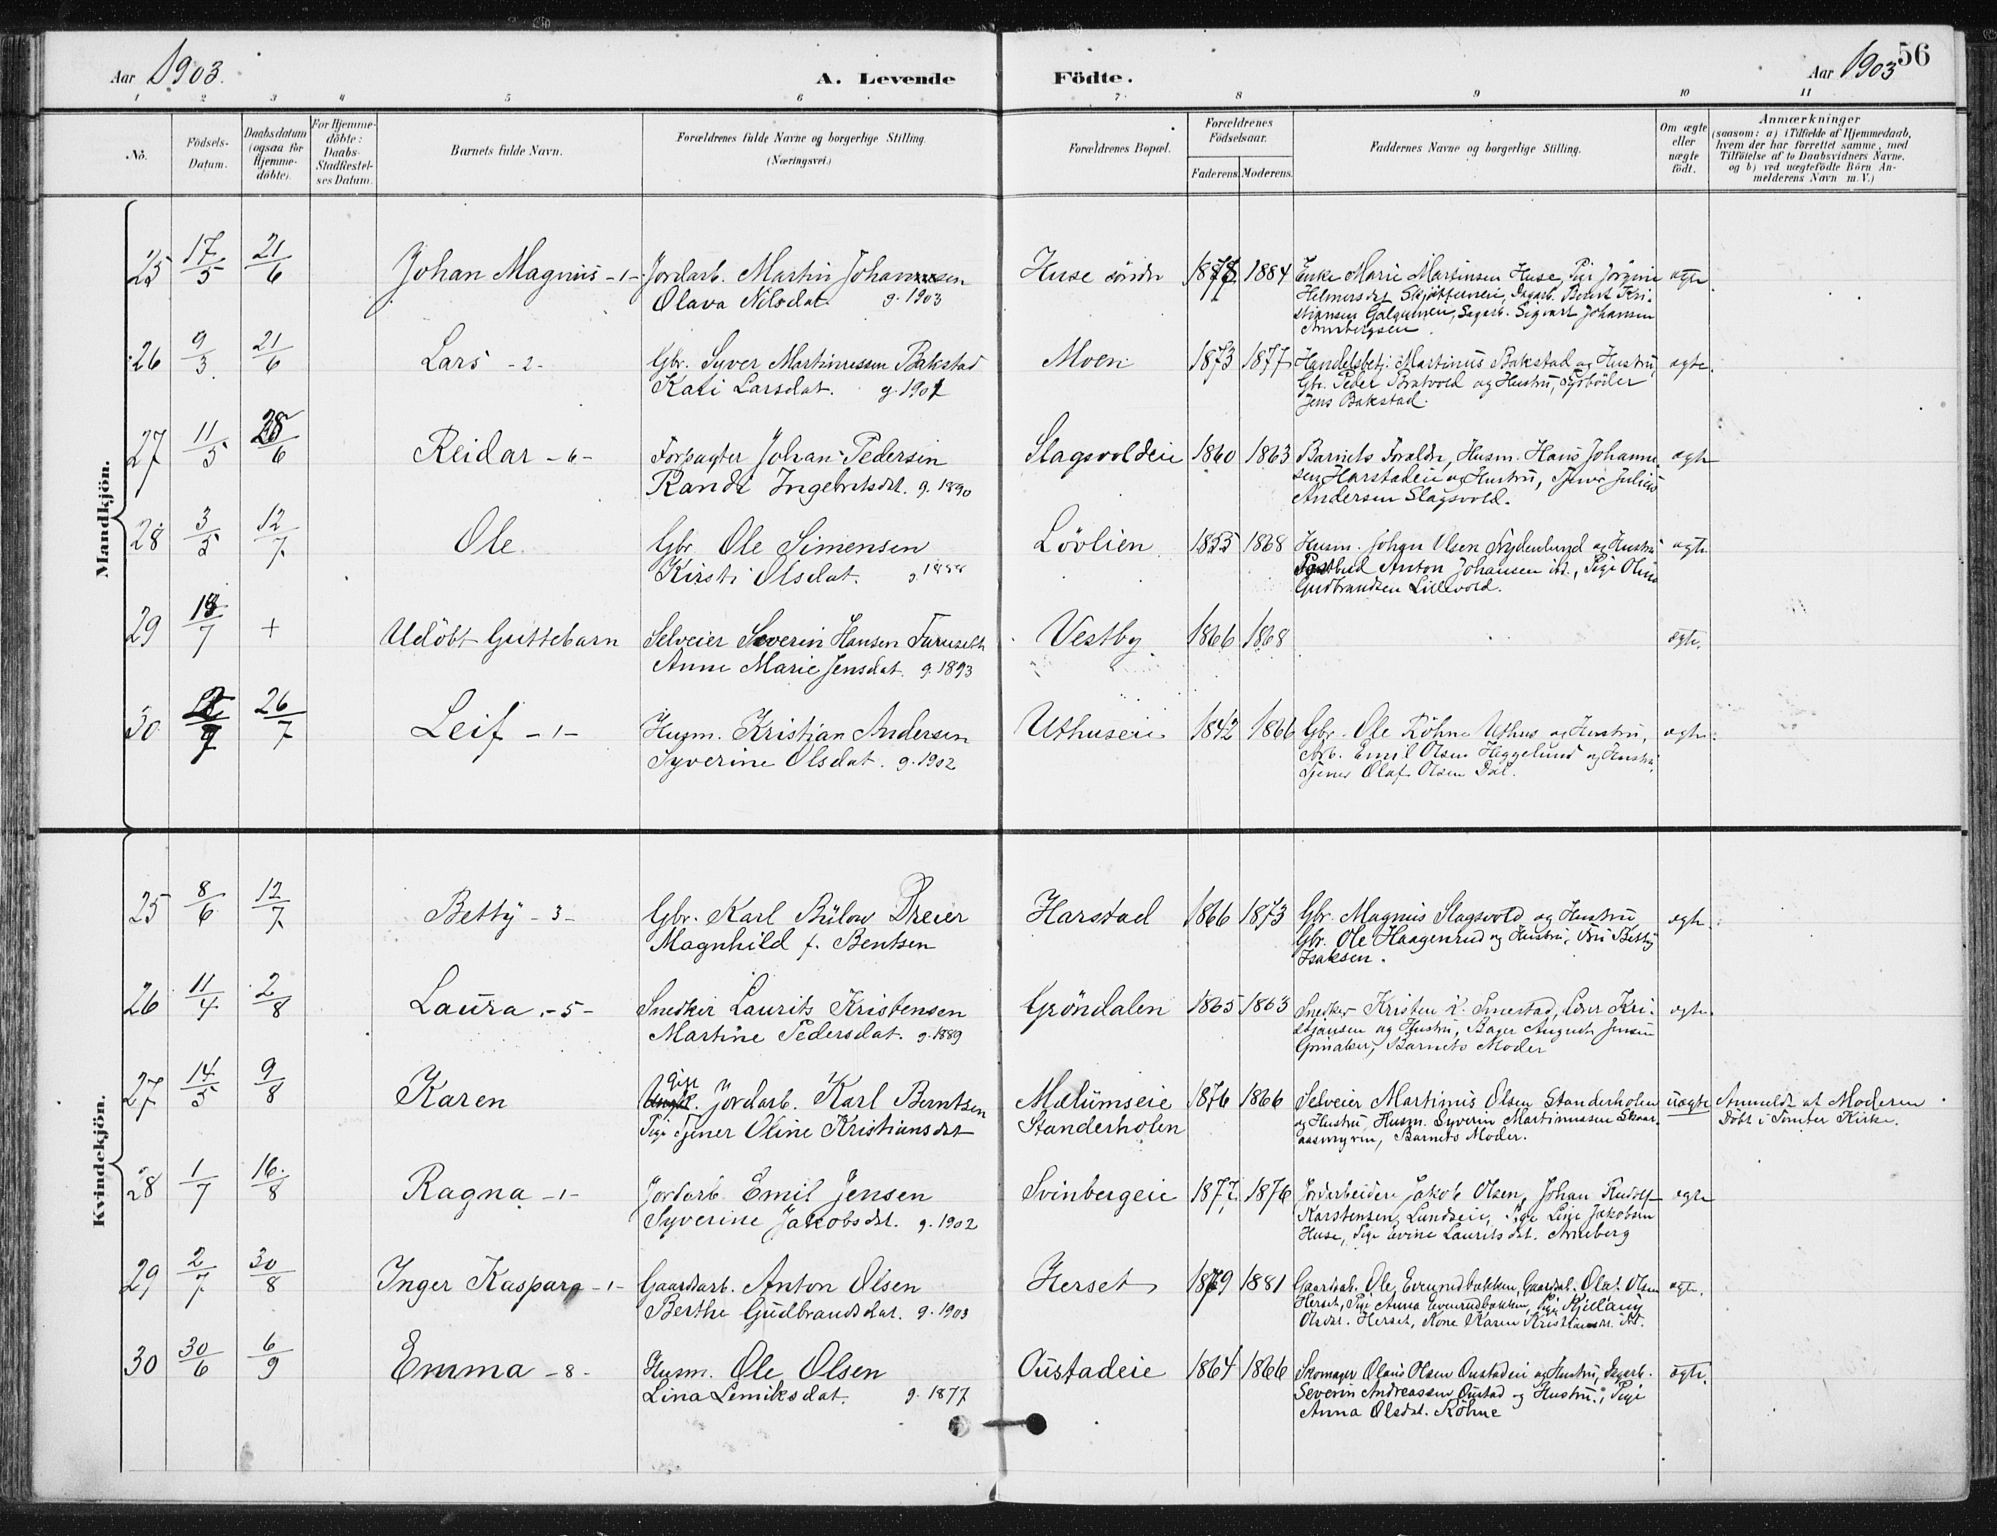 Aar 1903.
A. Levende Födte.
Aar 1903
56
1 2 3 4 5 6 7 8 9 10 11
No.
Födsels-Datum.
Daabsdatum (ogsaa for Hjemme-döbte).
For Hjemme-döbte: Daabs-Stadfæstel-ses Datum.
Barnets fulde Navn.
Forældrenes fulde Navne og borgerlige Stilling. (Næringsvei.)
Forældrenes Bopæl.
Forældrenes Födselsaar.
Faderens. Moderens.
Faddernes Navne og borgerlige Stilling.
Om ægte eller uægte födt.
Anmærkninger
(saasom: a) i Tilfælde af Hjemmedaab, hvem der har forrettet samme, med Tilföielse af to Daabsvidners Navne, og b) ved uægtefödte Börn An-melderens Navn m. V.)
Mandkjön.
25 17/5 21/6 Johan Magnus -1- Jordarb. Martin Johansen Huse söndre 1884 Enke Marie Martinsen Huse, Pige Jörgine ægte.
Olava Nilsdat g. 1903 Helmersdat
26 9/3 21/6 Lars -2- Gbr. Syver Martinussen Bakstad Moen 1873 1877 Handelsbetj. Martinus Bakstad og Hustru, ægte.
Kari Larsdat. g. 1901 Gbr. Peder Bratvold og Hustru,
Jens Bakstad.
27 11/5 28/6 Reidar -6- Forpagter Johan Pedersen Slagsvoldeie 1860 1863 Barnets Forældre, Husm. Hans Johanne- ægte
Randi Ingebretsdat. g. 1890 sen Harstadeie og Hustru, Tjener Julius
Andersen Slagsvold.
28 3/5 12/7 Ole Gbr. Ole Simensen Lövlien 1855 1868 Husm. Johan Olsen Nydenlund og Hustru ægte.
Kirsti Olsdat. g. 1888 Postbud Anton Johansen ibd., Pige Oline
Gudbrandsen Lillevold.
29 /7 + Udöbt Guttebarn Selveier Severin Hansen Furuseth Vestby 1866 1868 ægte.
Anne Marie Jensdat. g. 1893
30 26/7 Leif -1- Husm. Kristian Andersen Uthuseie 1842 1866 Gbr. Ole Röhne Uthus og Hustru, ægte.
Syverine Olsdat. g. 1902 Arb. Emil Olsen Heggelund og Hustru,
Tjener Olaf Olsen Dal.
Kvindekjön.
25 8/6 12/7 Betty -3- Gbr. Karl Bülow Dreier Harstad 1866 1873 Gbr. Magnus Slagsvold og Hustru ægte.
Magnhild f. Bentsen Gbr. Ole Haagenrud og Hustru, Fru Betty
Isaksen.
26 11/4 2/8 Laura -5- Snedker Laurits Kristensen Gröndalen 1865 1863 Snedker Kristen K. Smestad, Lærer Kri- ægte.
Martine Pedersdat. g. 1889 stiansen og Hustru, Bager August Jensen
Barnets Moder
27 14/5 9/8 Karen Gift Jordarb. Karl Berntsen Mælumseie 1876 1866 Selveier Martinus Olsen Standerholen uægte Anmeldt at Moderen
Pige Tjener Oline Kristiansdat Standerholen og Hustru, Husm. Syverin Martinussen Skaar- Döbt i Tomter Kirke.
aasmyren, Barnets Moder.
28 1/7 16/8 Ragna -1- Jordarb. Emil Jensen Svinbergeie 1877 1876 Jordarbeidere Jakob Olsen, Johan Rudolf ægte
Syverine Jakobsdat. g. 1902 Karstensen Lundseie, Pige Lise Jakobsen
Huse, Pige Evine Lauritsdat. Arneberg
29 2/7 30/8 Inger Kaspara -1- Gaardsarb. Anton Olsen Herset 1879 1881 Gaardsarb. Ole Evenrudbakken, Gaardsarb. Olaf Olsen ægte.
Berthe Gudbrandsdat. g. 1903 Herset, Pige Anna Evenrudbakken, Pige
Olsdat. Herset, Kone Karen Kristiansdat. ibd.
30 30/6 6/9 Emma -8- Husm. Ole Olsen Oustadeie 1864 1866 Skomager Olaus Olsen Oustadeie og Hustru, Dagarb. ægte.
Lina Lemiksdat. g. 1877 Severin Andreassen Oustad og Hustru, Pige
Anna Olsdat. Röhne